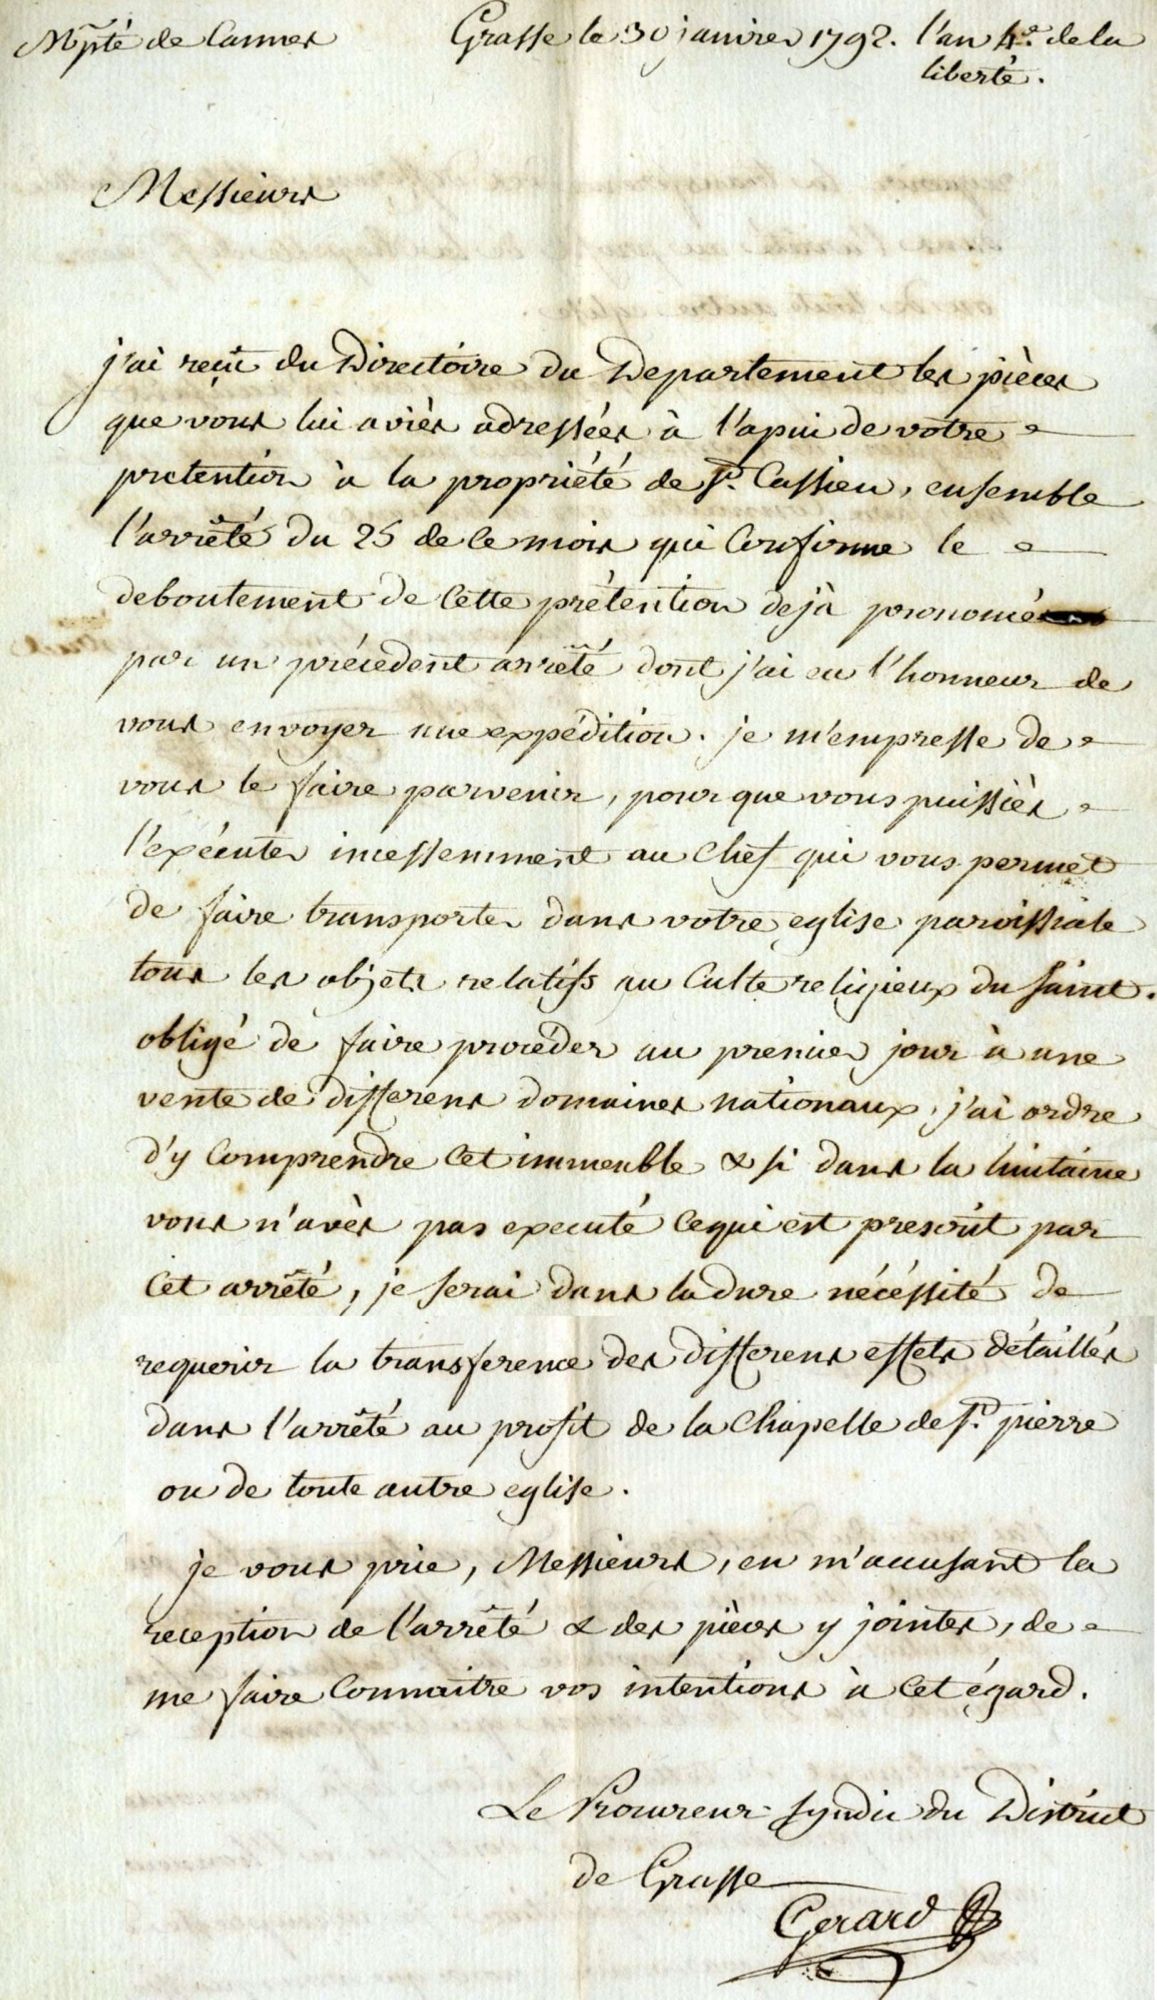 Mpté de Cannes
Grasse le 30 janvier 1792. l'an 4e. de la
liberté.
Messieurs
j'ai reçu du Directoire du Departement les pièces
que vous lui aviès adressées à l'apui de votre
pretention à la propriété de St. Cassien, ensemble
l'arrêté du 25 de ce mois qui Confirme le
deboutement de Cette prétention dejà prononcé
par un précedent arrêté dont j'ai eu l'honneur de
vous envoyer une expédition. je m'empresse de
vous le faire parvenir, pour que vous puissiès
l'exécuter incessemment au Chef qui vous permet
de faire transporter dans votre eglise paroissiale
tous les objets relatifs au Culte religieux du Saint.
obligé de faire procéder au premier jour à une
vente de differens domaines nationaux, j'ai ordre
d'y Comprendre Cet immeuble & si dans la huitaine
vous n'avès pas executé Ce qui est prescrit par
Cet arrêté, je serai dans la dure nécéssité de
requerir la transference des differens effets détaillés
dans l'arrêté au profit de la Chapelle de St. pierre
ou de toute autre eglise.
je vous prie, Messieurs, en m'accusant la
reception de l'arrêté & des pièces y jointes, de
me faire Connaitre vos intentions à Cet égard.
Le Procureur Syndic du District
de Grasse
Gerard